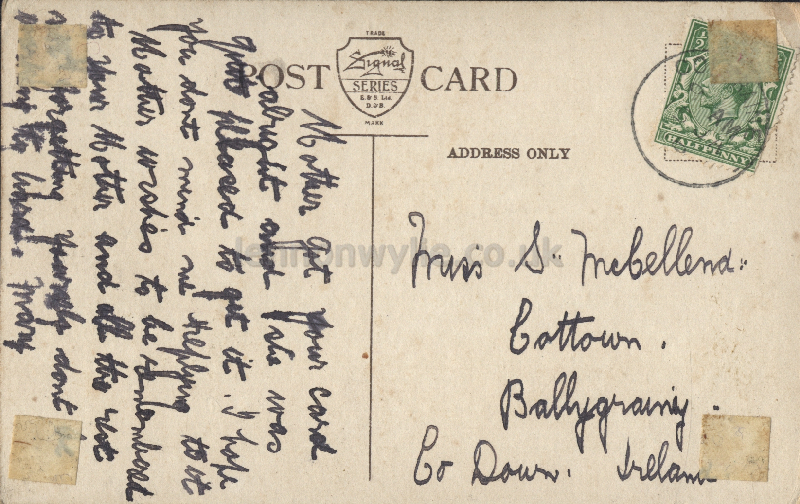 POST CARD
TRADE
Signal
SERIES
E. & S. Ltd.
D. & B.
MARK
ADDRESS ONLY
HALFPENNY
Miss S. McCellend.
Cottown.
Ballygrainy.
Co Down. Ireland
Mother got your card
alright and she was
quite pleased to get it. I hope
you dont mind me replying to it
Mother wishes to be remembered
to your Mother and all the rest
forgetting yourself dont
the
Mary
lennonwylie.co.uk